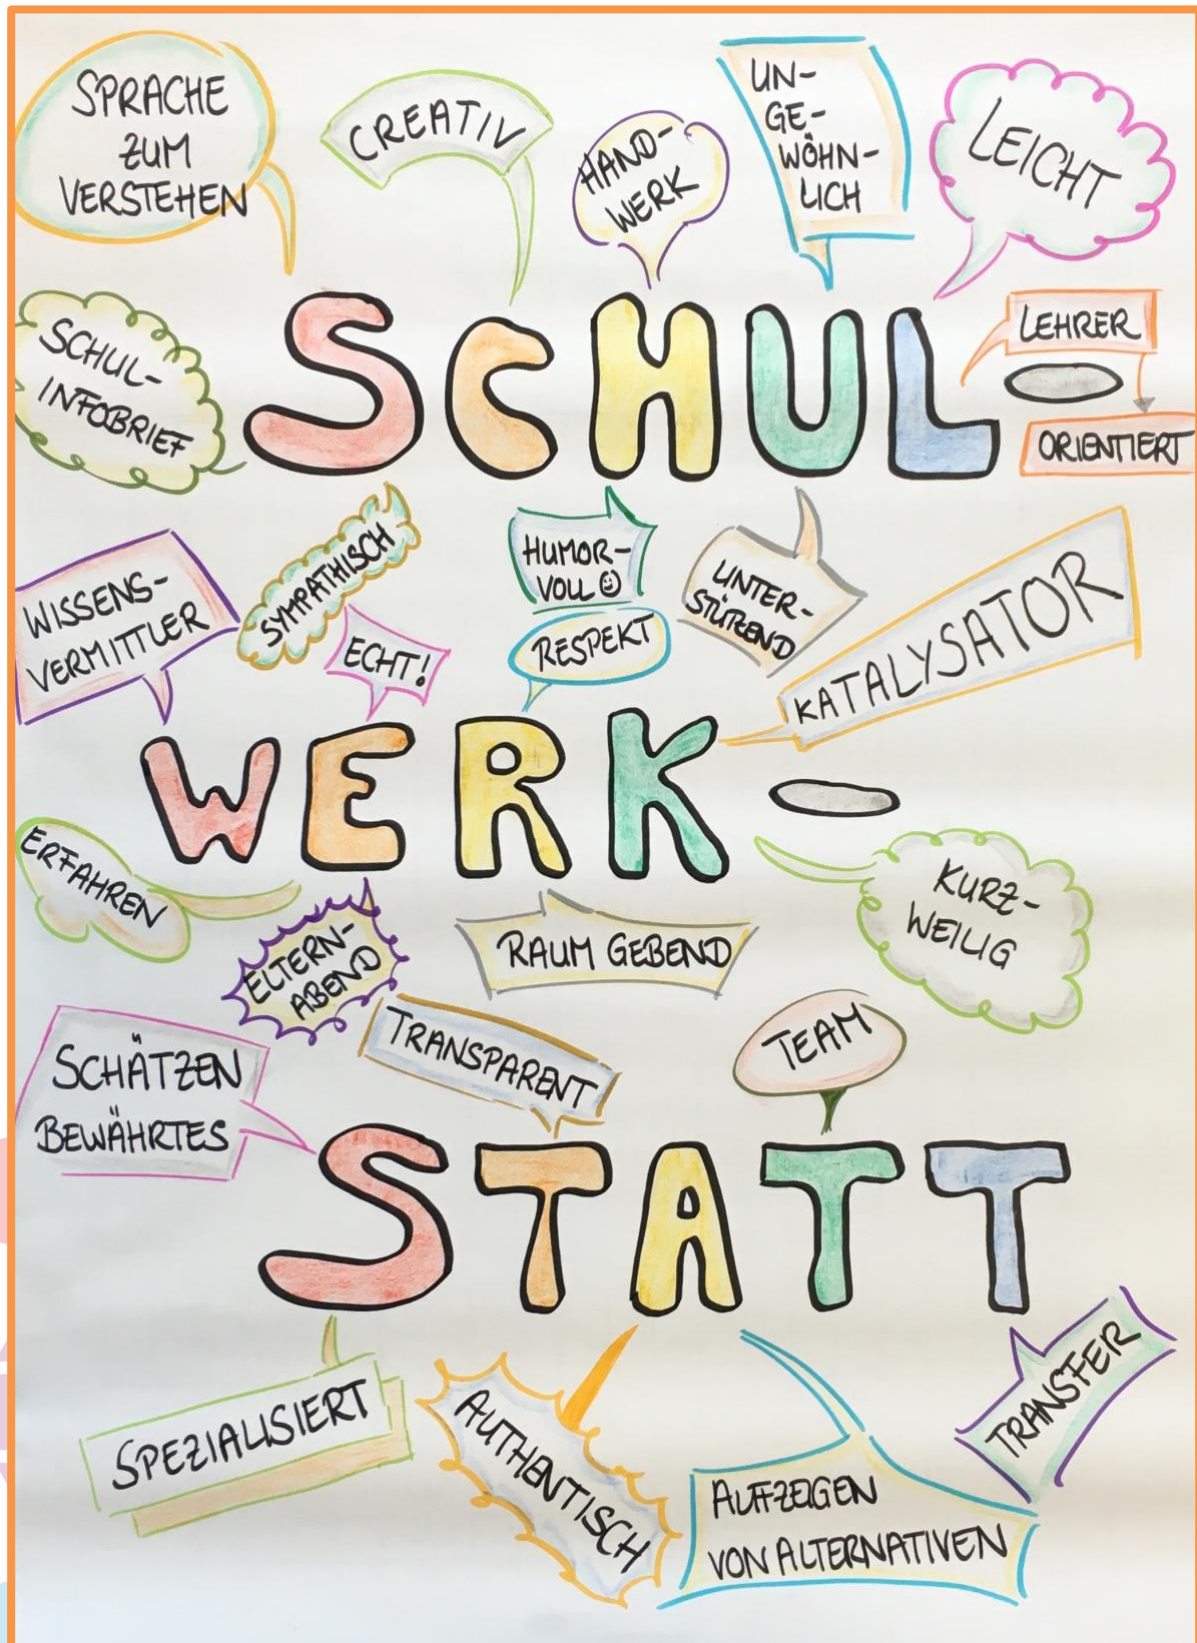 SPRACHE
ZUM
VERSTEHEN
CREATIV
HAND-
WERK
UN-
GE-
WÖHN-
LICH
LEICHT
SCHUL-
INFOBRIEF
SCHUL-
LEHRER
ORIENTIERT
WISSENS-
VERMITTLER
SYMPATHISCH
ECHT!
HUMOR-
VOLL ☺
RESPEKT
UNTER-
STÜTZEND
KATALYSATOR
WERK-
ERFAHREN
ELTERN-
ABEND
RAUM GEBEND
KURZ-
WEILIG
SCHÄTZEN
BEWÄHRTES
TRANSPARENT
TEAM
STATT
SPEZIALISIERT
AUTHENTISCH
AUFZEIGEN
VON ALTERNATIVEN
TRANSFER